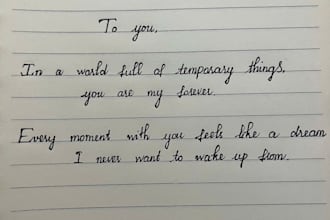 To you,
In a world full of temporary things,
you are my forever.
Every moment with you feels like a dream
I never want to wake up from.